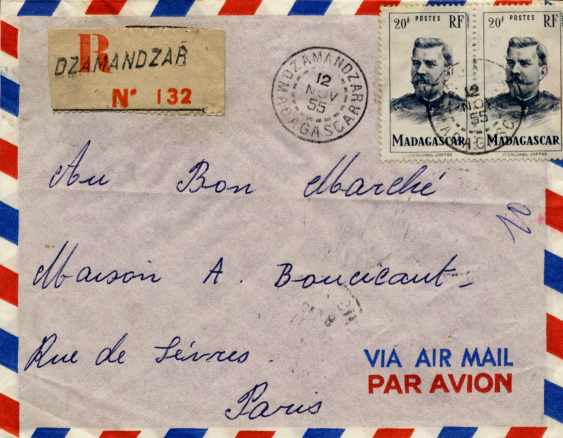 R
DZAMANDZAR
N° 132
DZAMANDZAR
12
NOV
55
MADAGASCAR
20f POSTES RF
MADAGASCAR
20f POSTES RF
MADAGASCAR
12
NOV
55
Au Bon Marché
Maison A. Boucicaut
Rue de Sèvres.
Paris
10
VIA AIR MAIL
PAR AVION